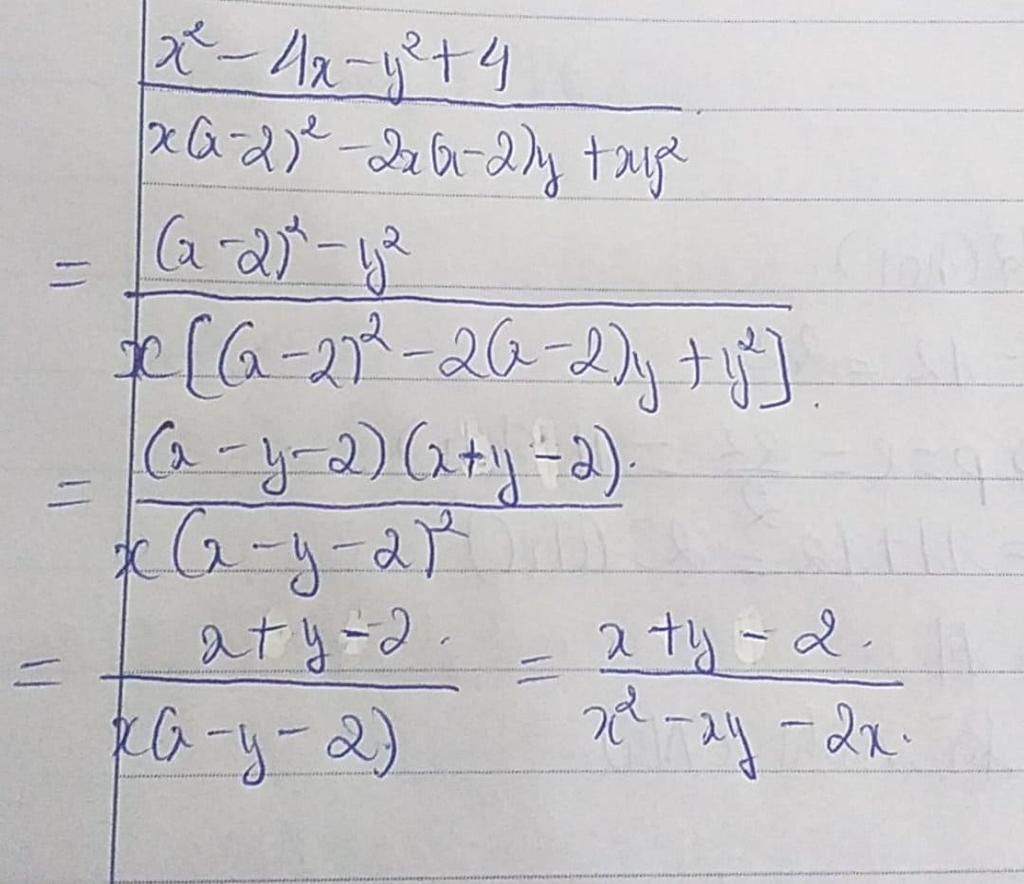 x² - 4x - y² + 4
x(x-2)² - 2x(x-2)y + xy²
= (x-2)² - y²
x[(x-2)² - 2(x-2)y + y²].
= (x - y - 2)(x + y - 2).
x(x - y - 2)²
= x + y - 2. = x + y - 2.
x(x - y - 2) x² - xy - 2x.